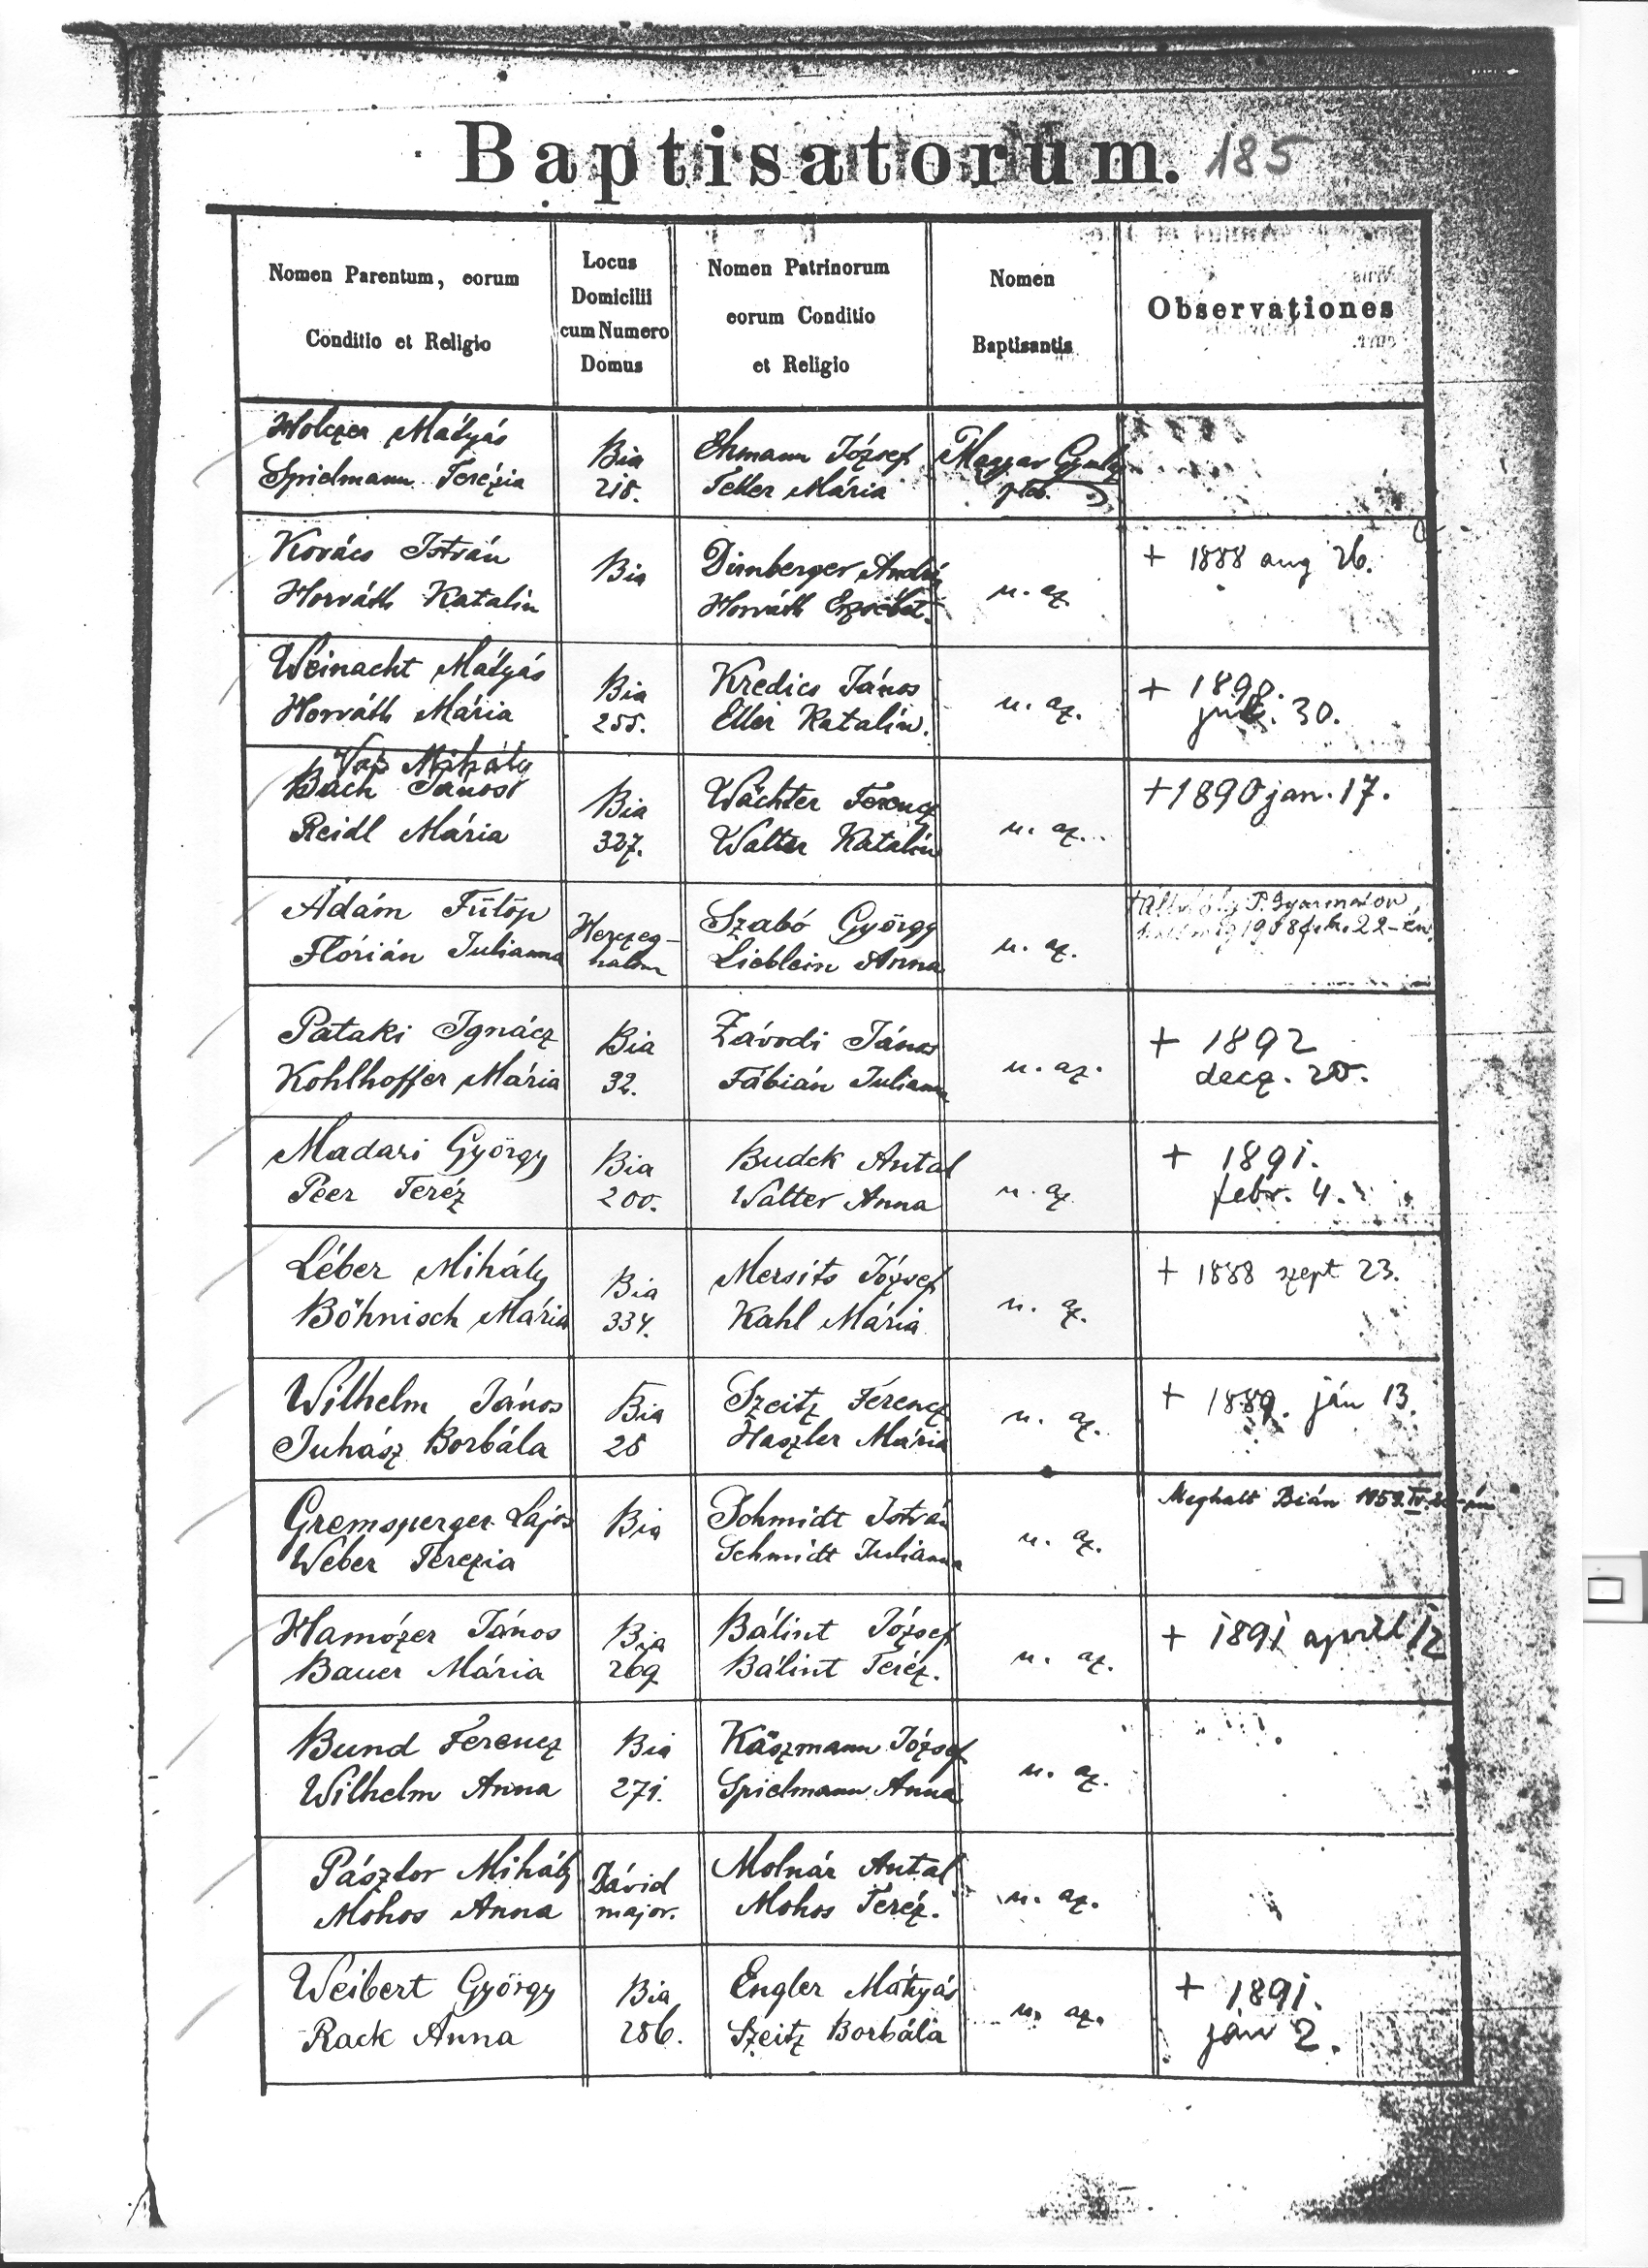 Baptisatorum. 185
Nomen Parentum, eorum
Conditio et Religio
Locus
Domicilii
cum Numero
Domus
Nomen Patrinorum
eorum Conditio
et Religio
Nomen
Baptisantis
Observationes
Holczer Mátyás
Spielmann Terézia
Bia
218.
Ehmann József
Teller Mária
Magyar Gyula
pléb.
Kovács István
Horváth Katalin
Bia
Dirnberger András
Horváth Erzsébet.
u. az
+ 1888 aug 26.
Weinacht Mátyás
Horváth Mária
Bia
255.
Kredics János
Eller Katalin.
u. az.
+ 1890.
30.
Vas Mihály
Bach János
Reidl Mária
Bia
327.
Wächter Ferencz
Walter Katalin
u. az.
+ 1890 jan. 17.
Ádám Fülöp
Flórián Julianna
Herczeg-
halom
Szabó György
Lieblein Anna
u. az.
P. Gyarmaton
22-én.
Pataki Ignácz
Kohlhoffer Mária
Bia
32.
Závodi János
Fábián Julianna
u. az.
+ 1892
decz. 20.
Madari György
Peer Teréz
Bia
200.
Budek Antal
Walter Anna
u. az
+ 1891.
febr. 4.
Léber Mihály
Böhnisch Mária
Bia
334.
Mersits József
Kahl Mária
u. az.
+ 1888 szept 23.
Wilhelm János
Juhász Borbála
Bia
28
Szeitz Ferencz
Haszler Mária
u. az.
+ 1889. ján 13.
Gremsperger Lajos
Weber Terezia
Bia
Schmidt István
Schmidt Julianna
u. az.
Meghalt Bián 1959. IV.
Hamózer János
Bauer Mária
Bia
269
Bálint József
Bálint Teréz.
u. az.
+ 1891 april 12
Bund Ferencz
Wilhelm Anna
Bia
271.
Käszmann József
Spielmann Anna
u. az.
Pásztor Mihály
Mohos Anna
Dávid
major.
Molnár Antal
Mohos Teréz.
u. az.
Weibert György
Rack Anna
Bia
286.
Engler Mátyás
Szeitz Borbála
u. az.
+ 1891.
jan 2.